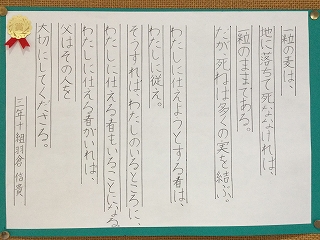 一粒の麦は、
地に落ちて死ななければ、
一粒のままである。
だが死ねば多くの実を結ぶ。
わたしに仕えようとする者は、
わたしに従え。
そうすれば、わたしのいるところに、
わたしに仕える者もいることになる
わたしに仕える者がいれば、
父はその人を
大切にしてくださる。
三年十組羽倉信貴